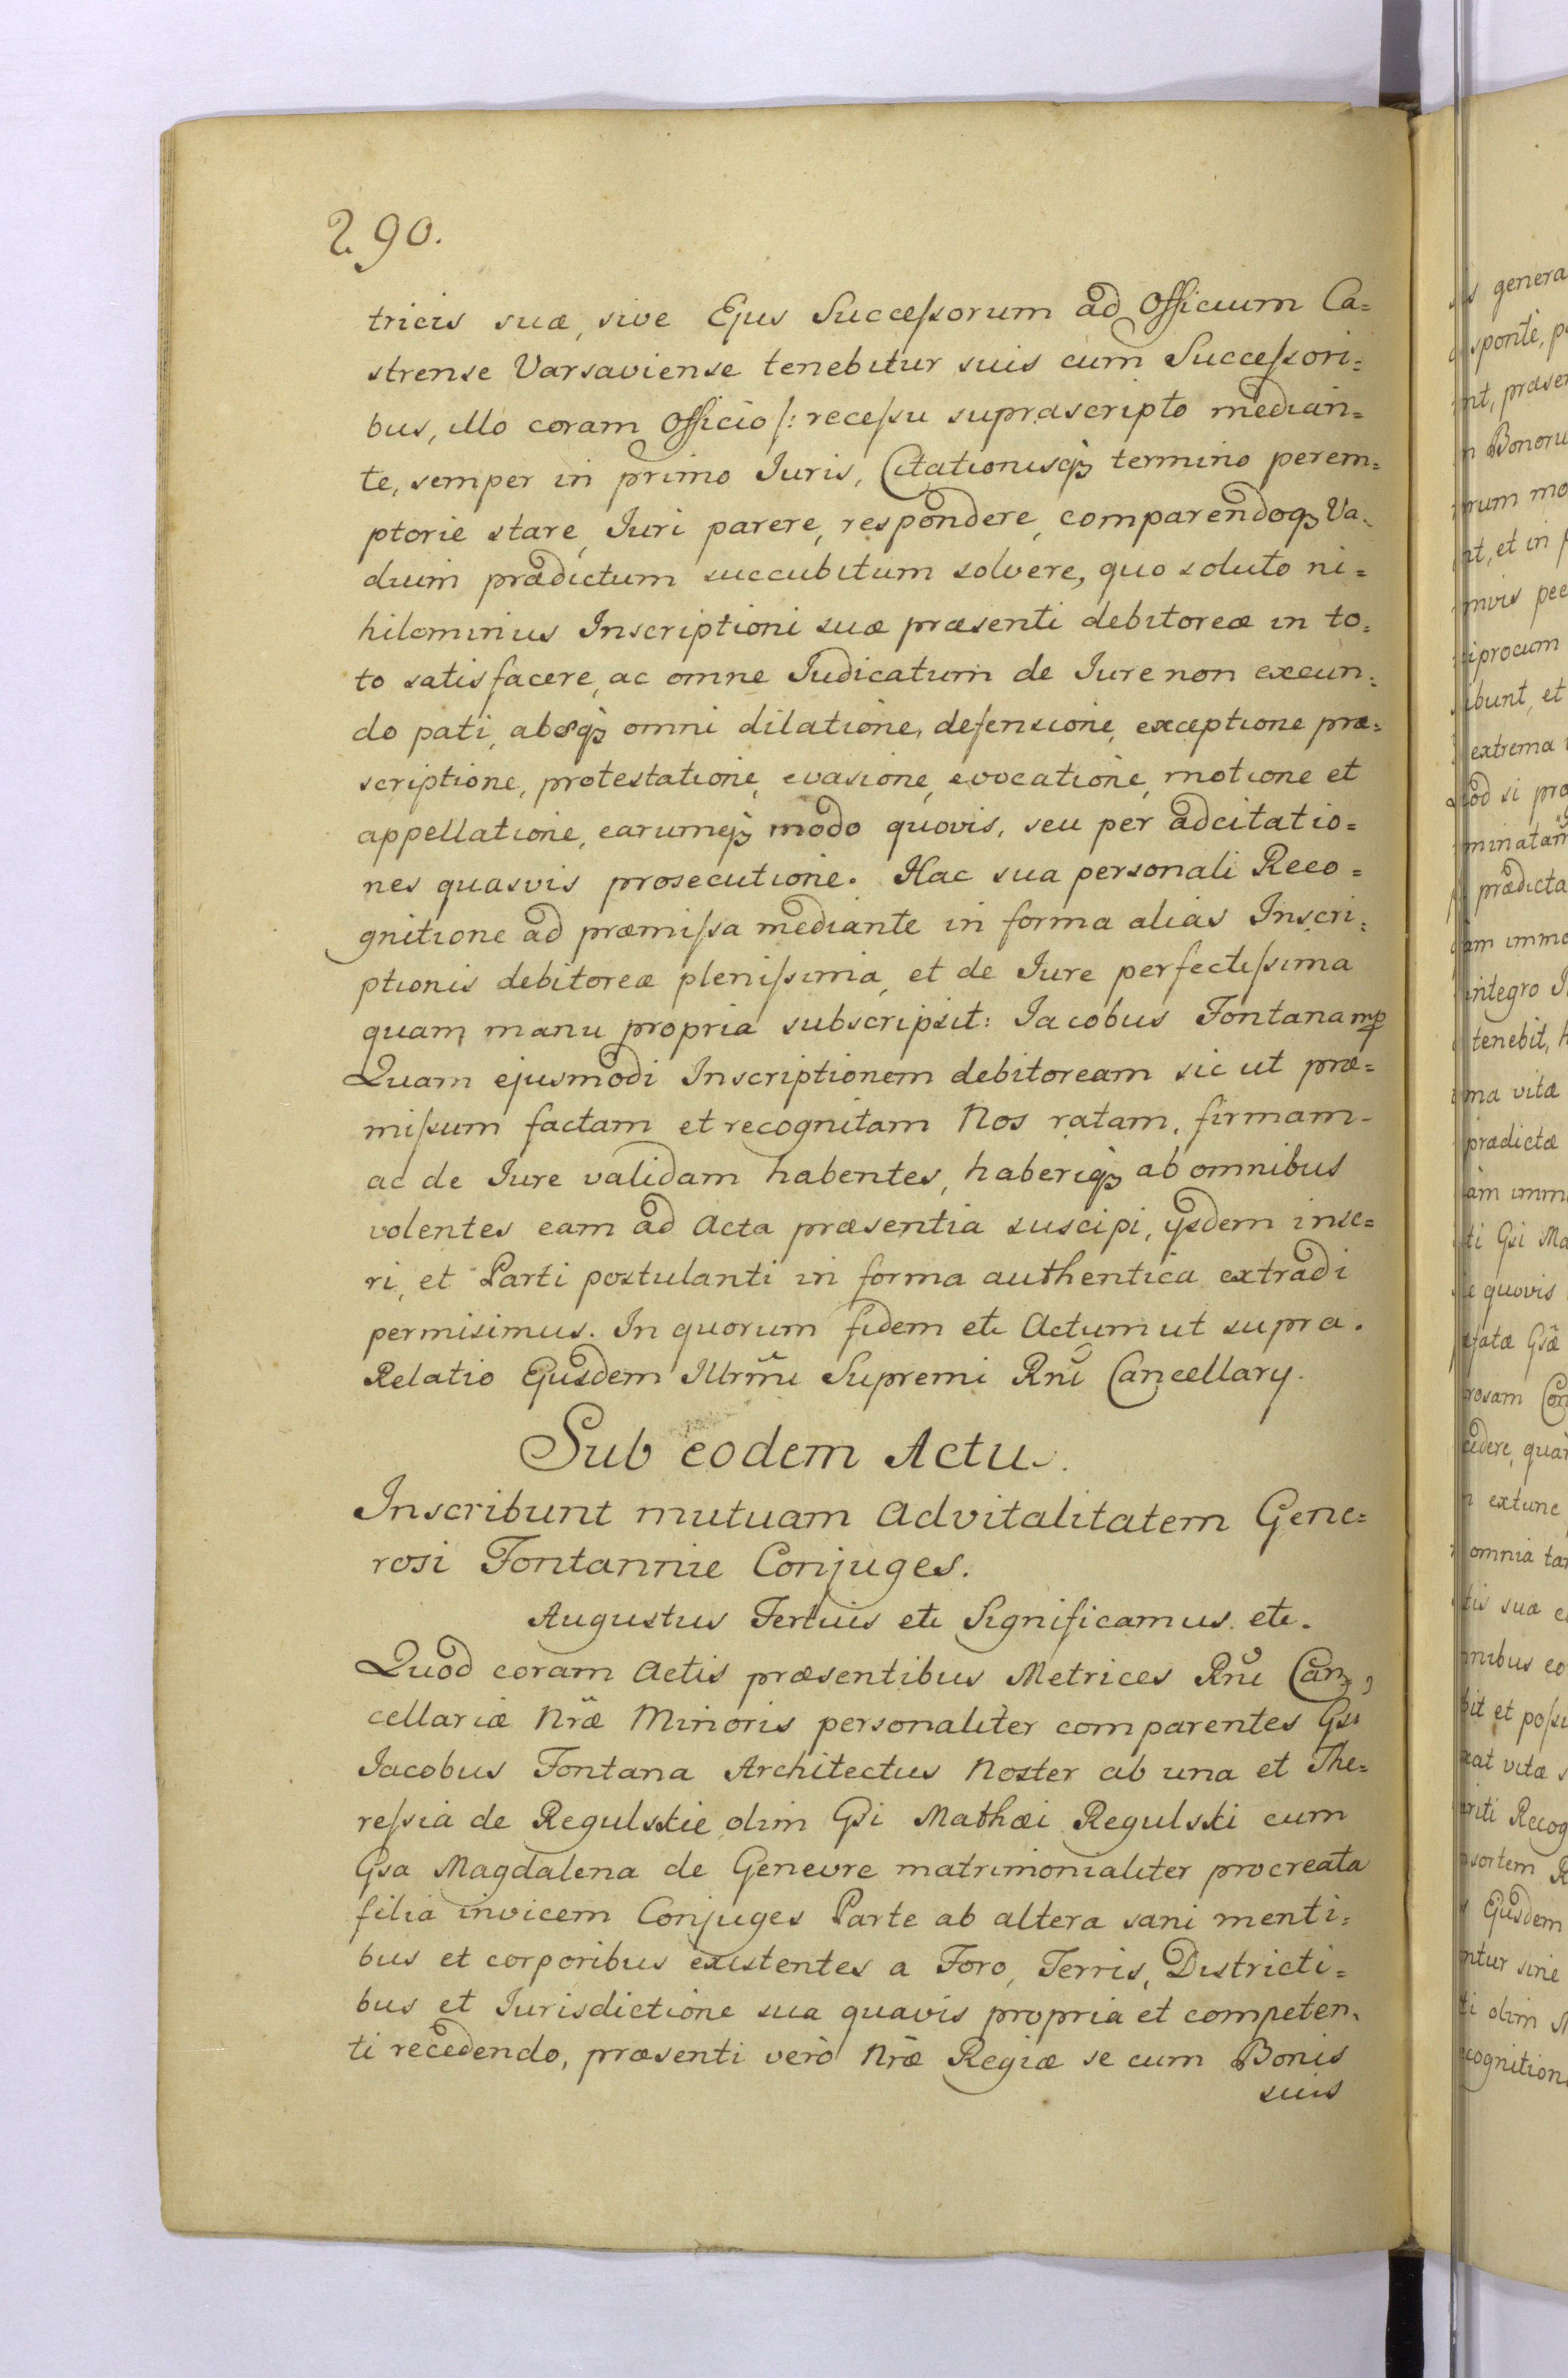 290.
tricis suæ, sive Ejus Successorum ad Officium Ca=
strense Varsaviense tenebitur suis cum Successori=
bus, illo coram Officio /: recessu suprascripto median=
te, semper in primo Iuris, Citationisq3 termino perem=
ptorie stare, Iuri parere, respondere, comparendoq3 Va=
dium prædictum succubitum solvere, quo soluto ni=
hilominus Inscriptioni suæ præsenti debitoreæ in to=
to satisfacere, ac omne Iudicatum de Iure non exeun=
do pati, absq3 omni dilatione, defensione, exceptione præ=
scriptione, protestatione, evasione, evocatione, motione et
appellatione, earumq3 modo quovis, seu per adcitatio=
nes quasvis prosecutione. Hac sua personali Reco=
gnitione ad præmissa mediante in forma alias Inscri=
ptionis debitoreæ plenissima, et de Iure perfectissima
quam manu propria subscripsit: Iacobus Fontana mp
Quam ejusmodi Inscriptionem debitoream sic ut præ=
missum factam et recognitam Nos ratam, firmam-
ac de Iure validam habentes, haberiq3 ab omnibus
volentes eam ad Acta præsentia suscipi, ijsdem inse=
ri, et Parti postulanti in forma authentica extradi
permisimus. In quorum fidem etc Actum ut supra.
Relatio Ejusdem Illrm̃i Supremi Rnĩ Cancellary.
Sub eodem Actu.
Inscribunt mutuam Advitalitatem Gene=
rosi Fontannie Conjuges.
Augustus Tertius etc Significamus. etc.
Quod coram Actis præsentibus Metrices Rnĩ Can=
cellariæ Nræ̃ Minoris personaliter comparentes Gsi
Iacobus Fontana Architectus Noster ab una et The=
ressia de Regulskie olim Gsi Mathæi Regulski cum
Gsa Magdalena de Genevre matrimonialiter procreata
filia invicem Conjuges Parte ab altera sani menti=
bus et corporibus existentes a Foro, Terris, Districti=
bus et Iurisdictione sua quavis propria et competen=
ti recedendo, præsenti verò Nræ̃ Regiæ se cum Bonis
suis
genera
sponte, p
nt, præsen
Bonoru
rum mo
nt, et in
mvis pec
ciprocum
ibunt, et
extrema
od si pro
minatam
prædicta
am immo
integro
tenebit, h
ma vitæ
prædictæ
àm immo
ti Gsi Ma
quovis
Gsæ
rosam Con
cedere, quam
extunc
omnia tam
tis sua
nibus eo
bit et possi
vitæ
Recog
sortem R
Ejusdem
ntur sine
ti olim M
cognition